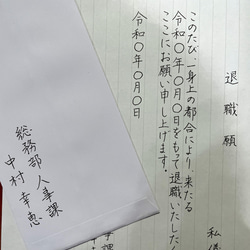 退職願
私儀
このたび、一身上の都合により、来たる
令和〇年〇月〇日をもって退職いたしたく
ここにお願い申し上げます。
令和〇年〇月〇日
総務部 人事課
中村幸恵